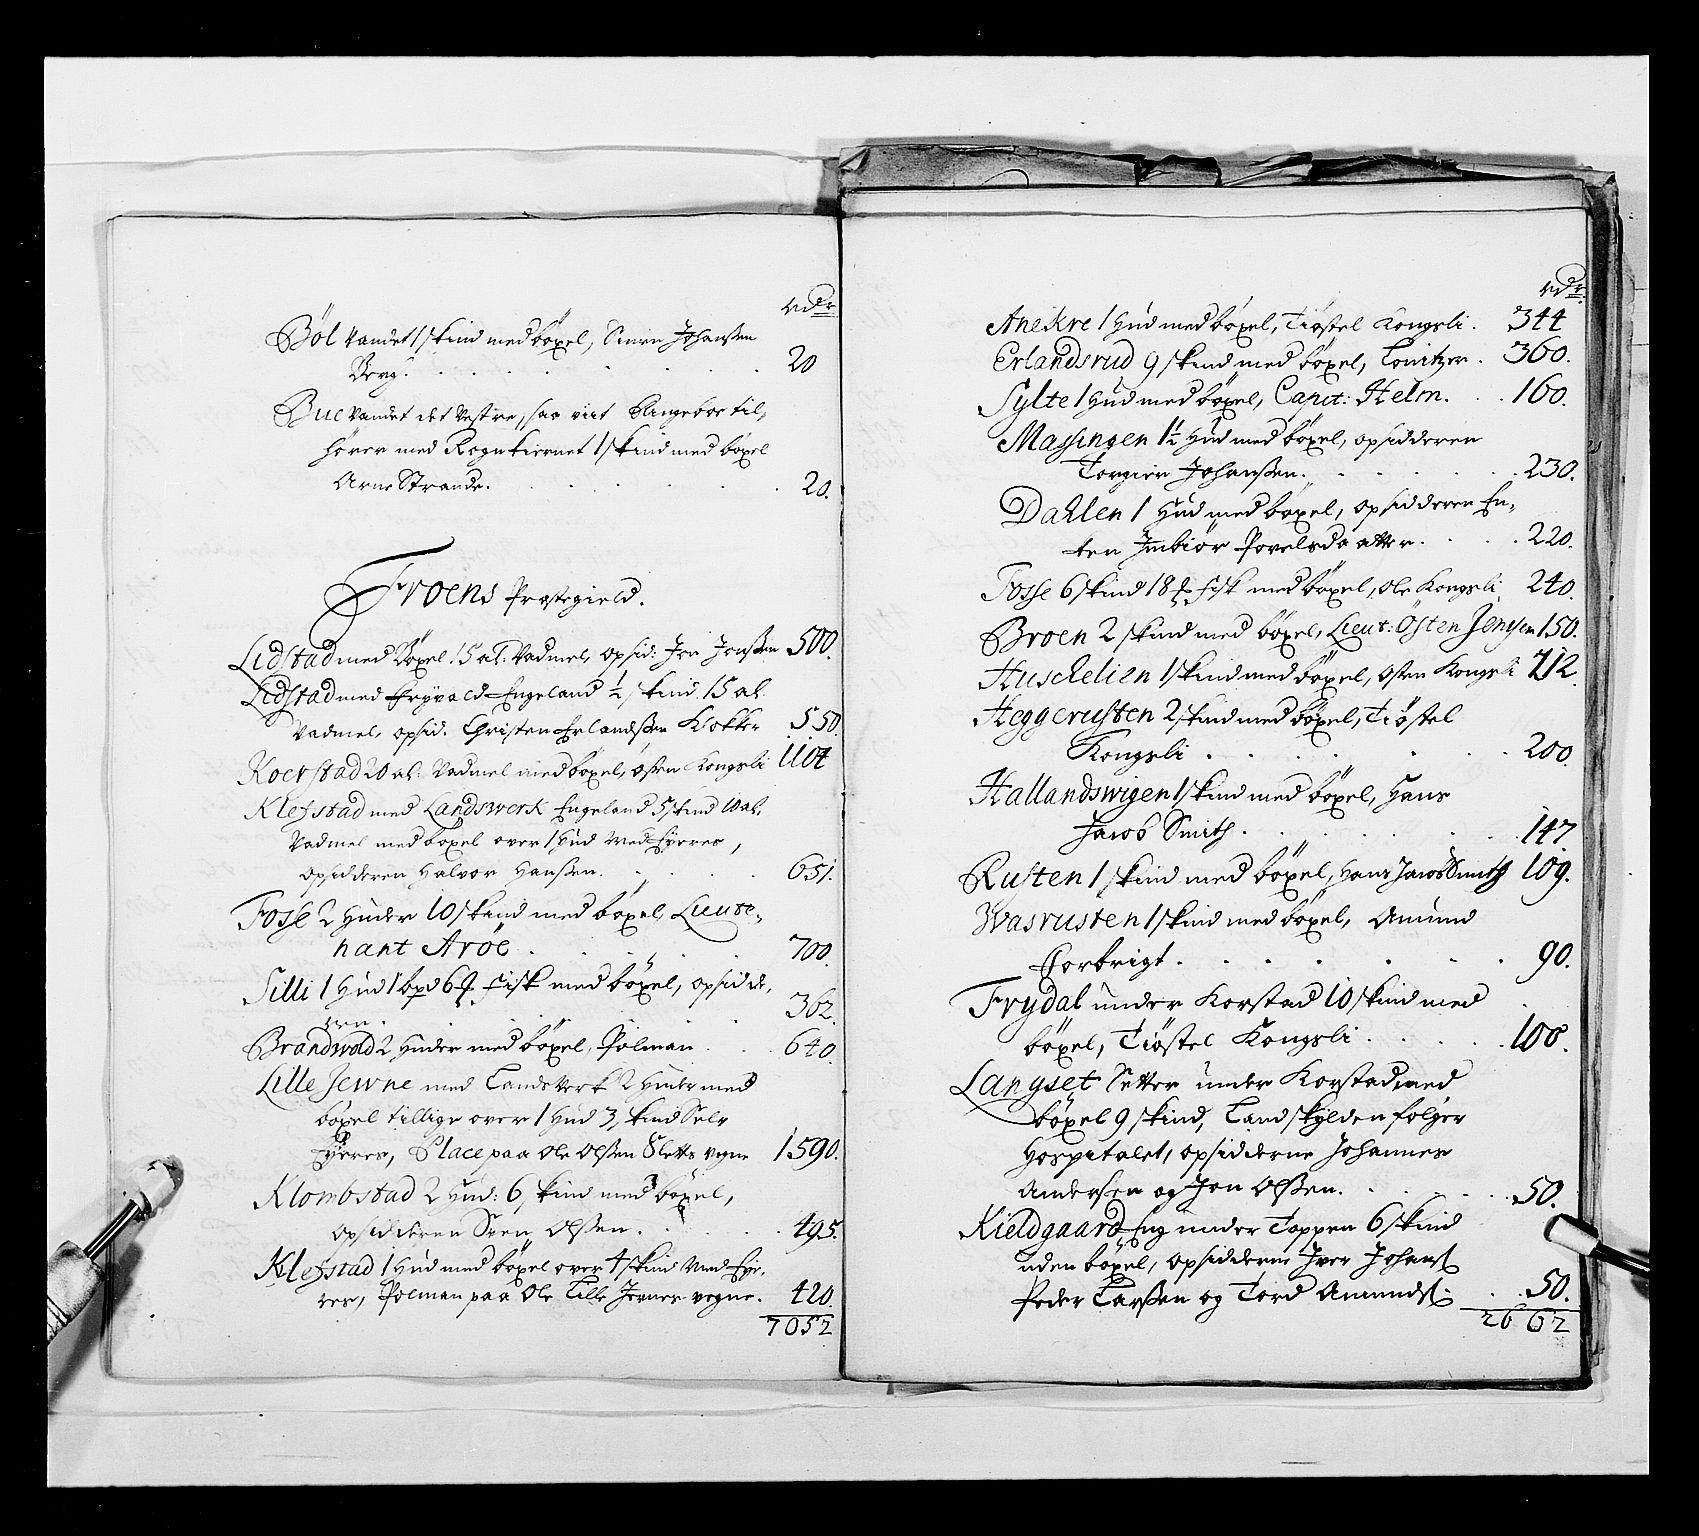 rdr
Böl vandet 1 skind med böxel, Simen Johanßen
Berg. 20
Bue vandet det Vestre, saa viit Elingeboe til,
hörer med Rognkiernet 1 skind med böxel
Arne Strande. 20.
Froens Præstegield.
Lidstad med Böxel 15 al: Vadmel, opsid: Jon Jonßen 500.
Lidstad med Fryvald Engeland ½ skind 15 al.
Vadmel, opsid. Christen Erlandßen Klokker 550.
Koerstad 20 al: Vadmel med böxel, Osten Kongsli 1104
Klefstad med Landswerk Engeland 5 skind 10 al.
Vadmel med böxel over 1 Hud med Eyeres,
opsidderen Halvor Hanßen. 651.
Fosse 2 Huder 10 skind med böxel, Lieute-
nant Aröe 700.
Silli 1 Hud 1 bpd 6 ℔ fisk med böxel, opsidde-
ren. 362.
Brandwold 2 Huder med böxel, Polman 640.
Lille Jewne med Landsverk 2 Huder med
böxel tillige over 1 Hud 3 skind Selv
Eyeres, Place paa Ole Olßen Sletts vegne 1590.
Klombstad 2 Hud: 6 skind med böxel,
opsidderen Sven Olßen. 495.
Klefstad 1 Hud med böxel over 4 skind med Eye-
res, Polman paa Ole Lille Jevnes vegne. 420.
7052
rdr
Anekre 1 Hud med böxel, Tiöstel Kongsli. 344
Erlandsrud 9 skind med böxel, Lonitzer. 360.
Sylte 1 Hud med böxel, Capit: Helm. 160.
Massingen 1½ Hud med böxel, opsidderen
Torgier Johanßen. 230.
Dahlen 1 Hud med böxel, opsidderen En-
ken Imbiör Povelsdaatter. 220.
Fosse 6 skind 18 ℔ fisk med böxel, Ole Kongsli 240.
Broen 2 skind med böxel, Lieut: Östen Jensen 150.
Huschelien 1 skind med böxel, Osten Kongsli 212.
Heggerusten 2 skind med böxel, Tiöstel
Kongsli 200.
Hallandswigen 1 skind med böxel, Hans
Jacob Smith. 147
Rusten 1 skind med böxel, Hans Jacob Smith 109.
Wasrusten 1 skind med böxel, Amund
Forbrigt. 90.
Frydal under Korstad 10 skind med
böxel, Tiöstel Kongsli. 100.
Langset Setter under Korstad med
böxel 9 skind, Landskylden fölger
Hospitalet, opsidderne Johannes
Andersen og Jon Olßen. 50.
Kieldgaard Eng under Toppen 6 skind
uden böxel, opsidderne Iver Johans:
Peder Larßen og Tord Amunds: 50.
2662